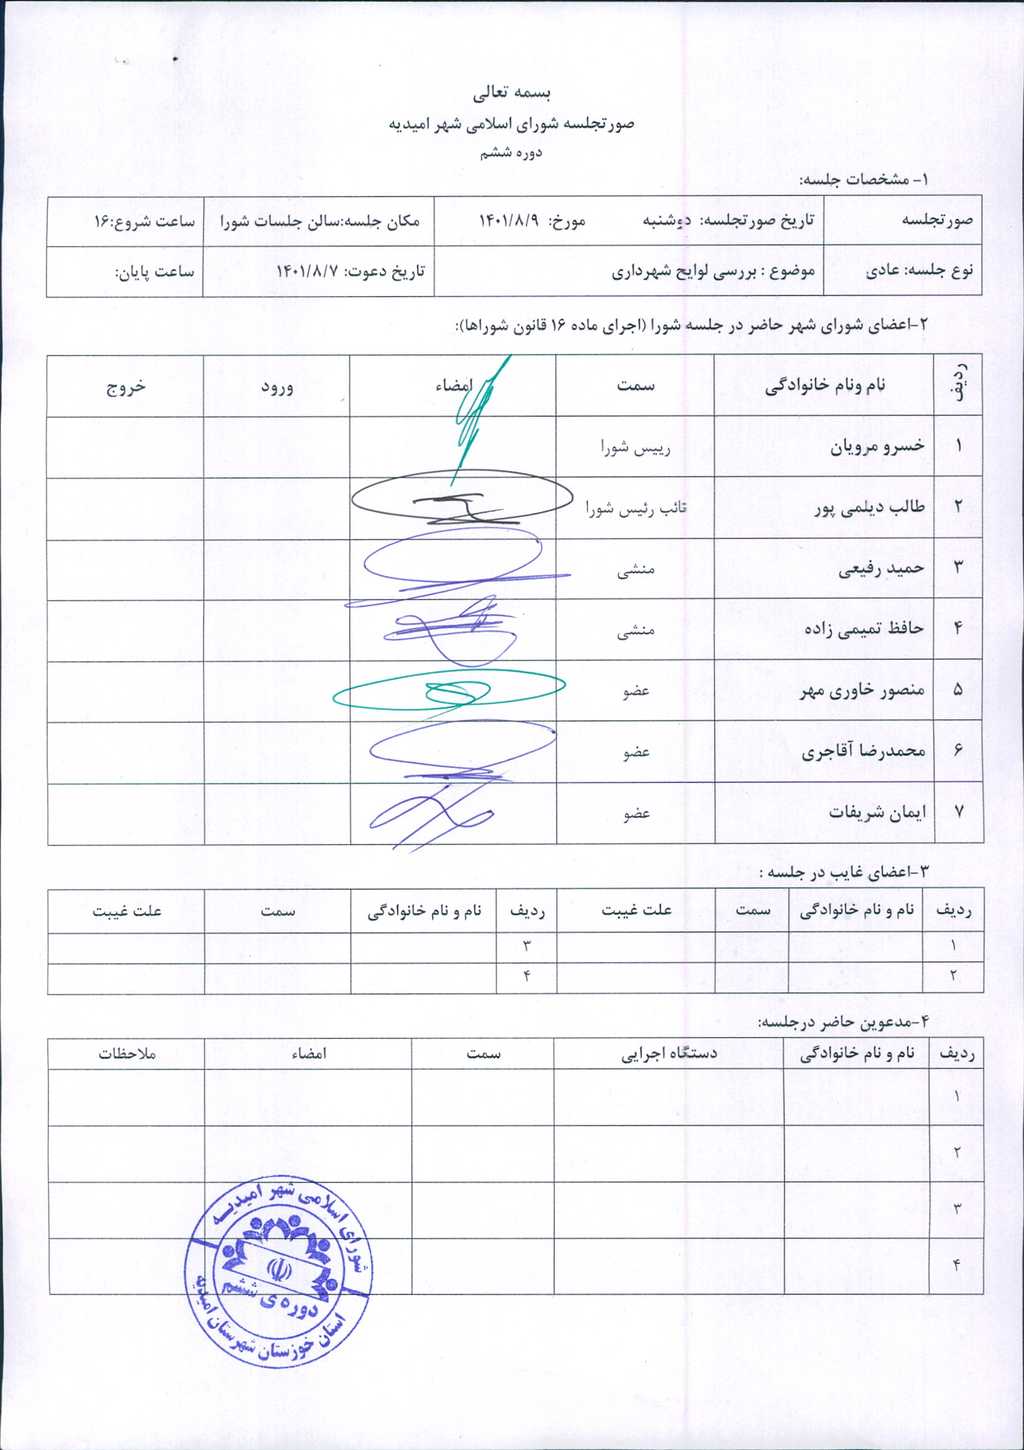 بسمه تعالی
صورتجلسه شورای اسلامی شهر امیدیه
دوره ششم
۱- مشخصات جلسه:
صورتجلسه تاریخ صورتجلسه: دوشنبه مورخ: ۱۴۰۱/۸/۹ مکان جلسه:سالن جلسات شورا ساعت شروع:۱۶
نوع جلسه: عادی موضوع : بررسی لوایح شهرداری تاریخ دعوت: ۱۴۰۱/۸/۷ ساعت پایان:
۲-اعضای شورای شهر حاضر در جلسه شورا (اجرای ماده ۱۶ قانون شوراها):
ردیف نام ونام خانوادگی سمت امضاء ورود خروج
۱ خسرو مرویان رییس شورا
۲ طالب دیلمی پور نائب رئیس شورا
۳ حمید رفیعی منشی
۴ حافظ تمیمی زاده منشی
۵ منصور خاوری مهر عضو
۶ محمدرضا آقاجری عضو
۷ ایمان شریفات عضو
۳-اعضای غایب در جلسه :
ردیف نام و نام خانوادگی سمت علت غیبت ردیف نام و نام خانوادگی سمت علت غیبت
۱ ۳
۲ ۴
۴-مدعوین حاضر درجلسه:
ردیف نام و نام خانوادگی دستگاه اجرایی سمت امضاء ملاحظات
۱
۲
۳
۴
شورای اسلامی شهر امیدیه
دوره ی ششم
استان خوزستان شهرستان امیدیه